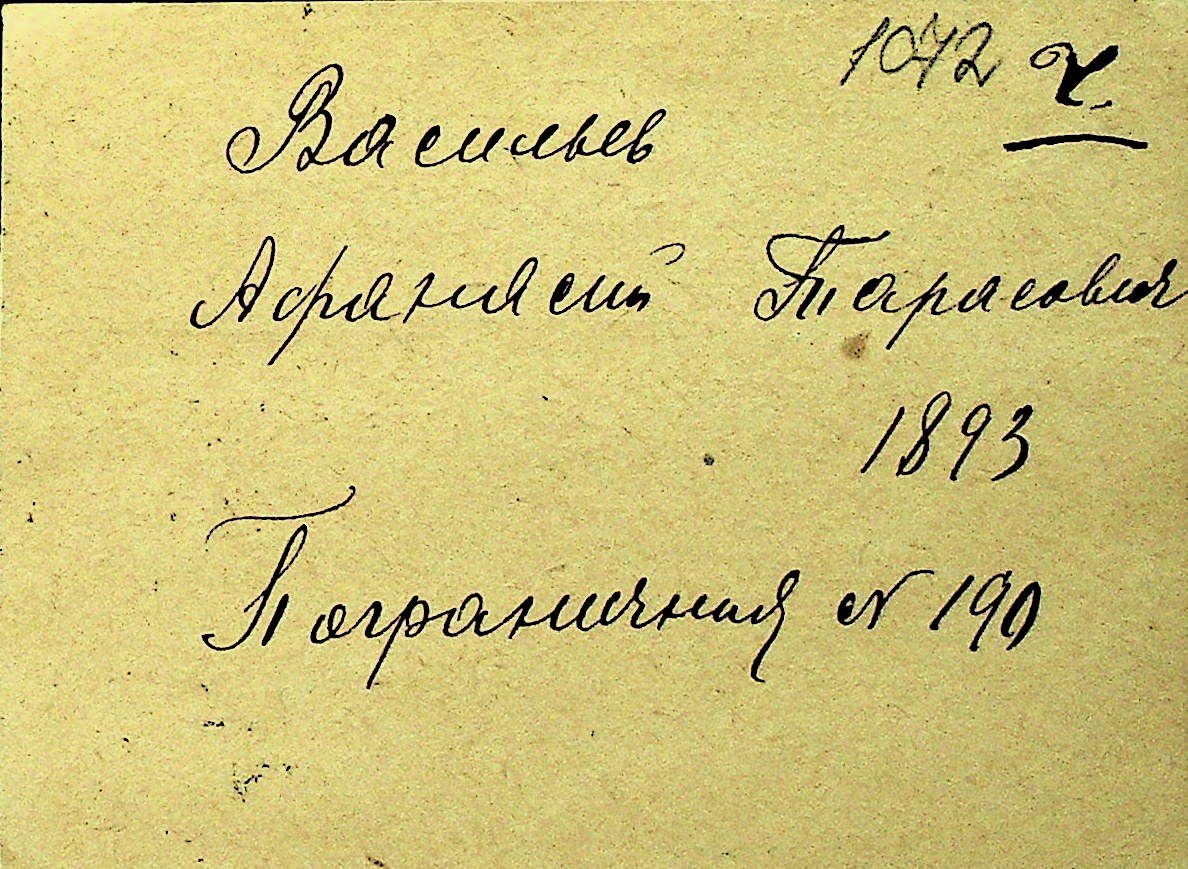 1042 Ч.
Васильев
Афанасий Тарасович
1893
Пограничная № 190